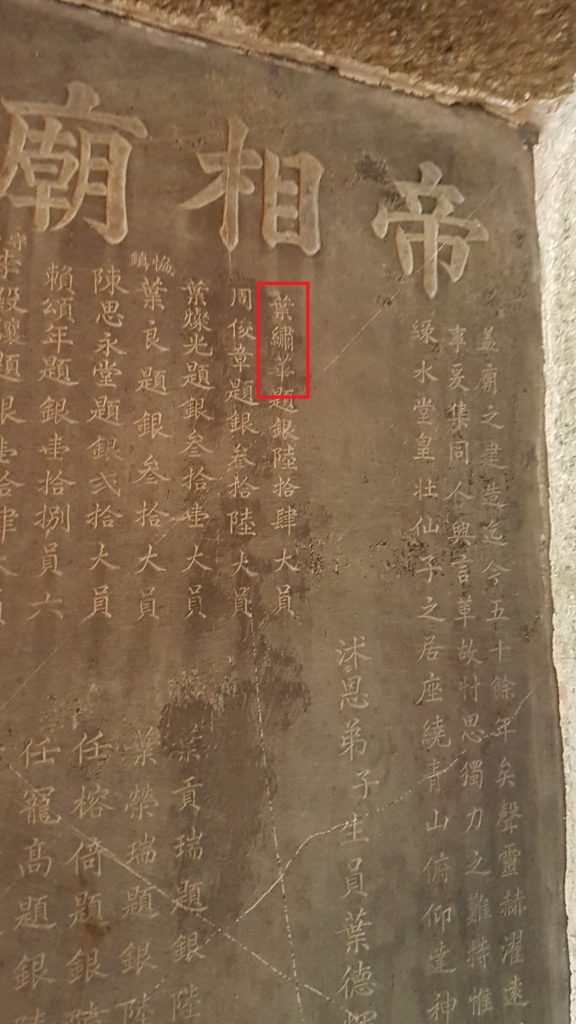 帝相廟
蓋廟之建造迄今五十餘年矣聲靈赫濯遠
事爰集同人興言革故忖思獨力之難持惟
綠水堂皇壯仙子之居座繞青山俯仰達神
沐恩弟子生員葉德
葉繡華題銀陸拾肆大員
周俊章題銀叁拾陸大員
葉燦光題銀叁拾壹大員
協鎮葉良題銀叁拾大員
陳思永堂題銀弍拾大員
賴頌年題銀壹拾捌員六
題銀壹拾肆大員
葉貢瑞題銀陸
葉榮瑞題銀陸
任榕倚題銀陸
任寵高題銀陸